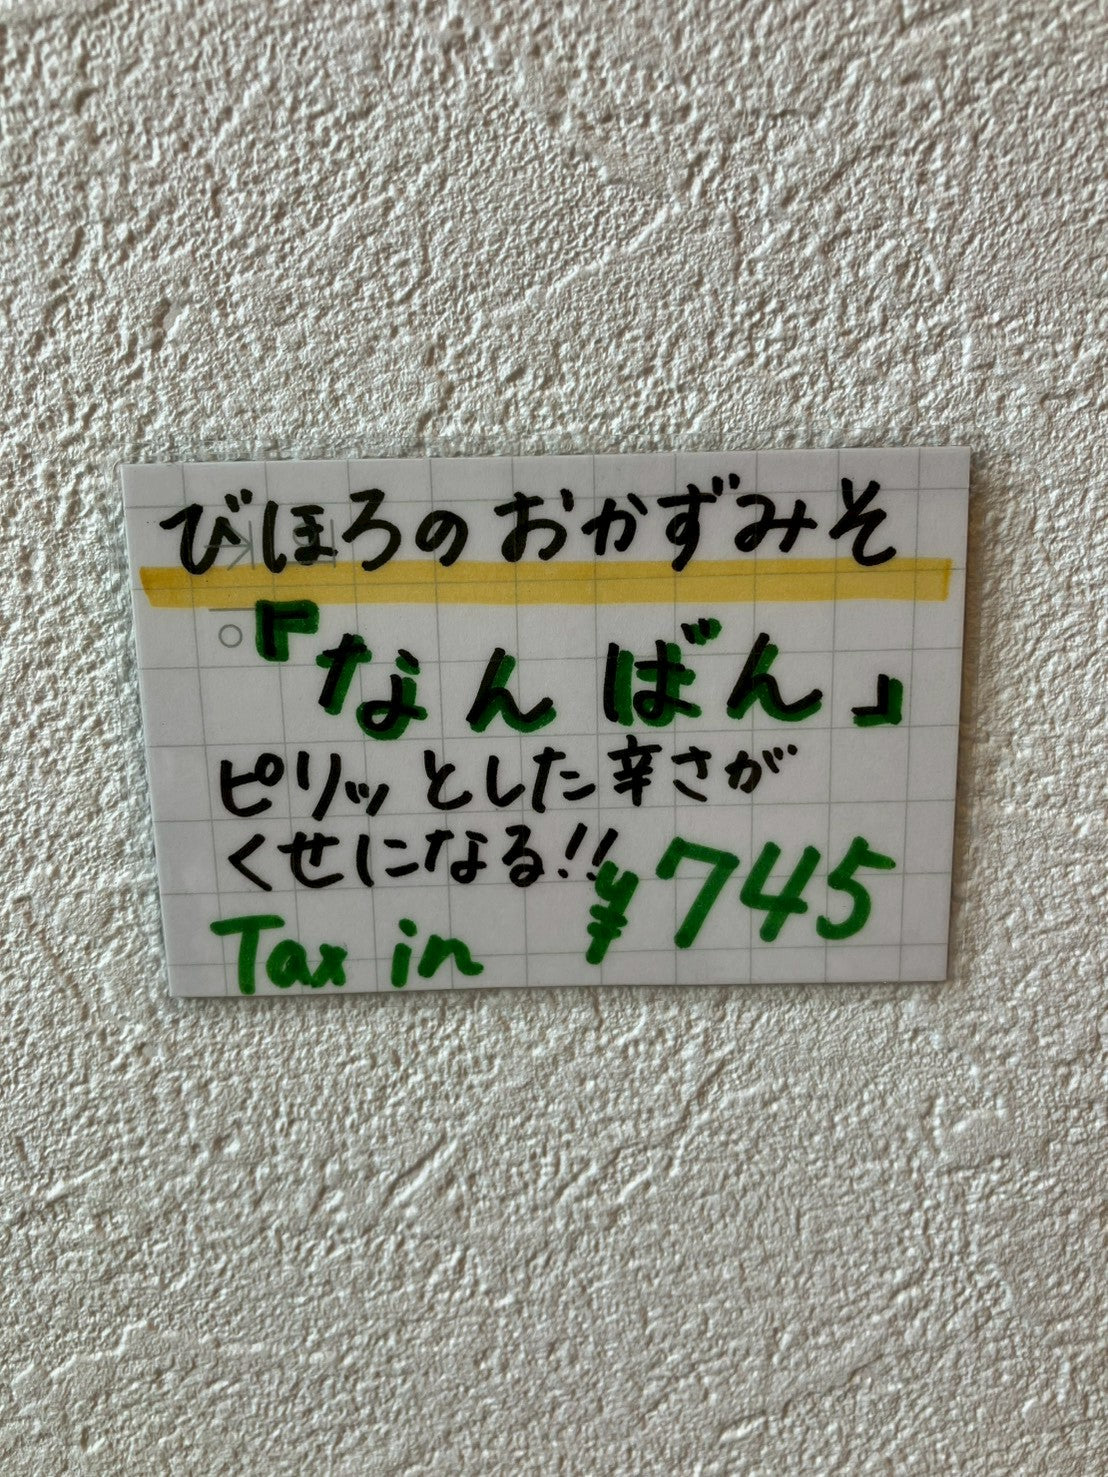 びほろのおかずみそ
『なんばん』
ピリッとした辛さが
くせになる!!
Tax in ¥745